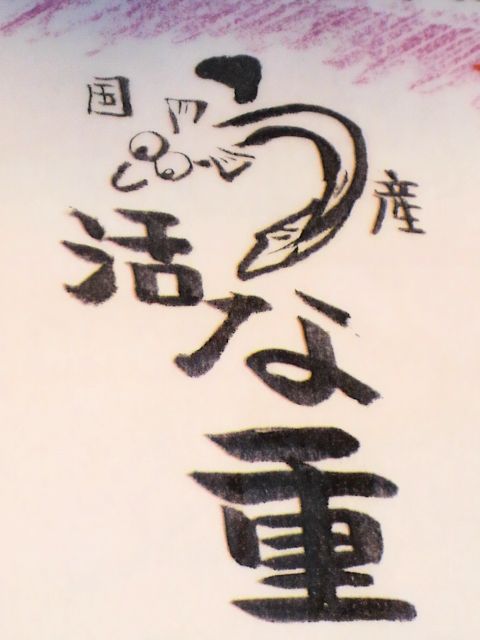 国産
活
うな重